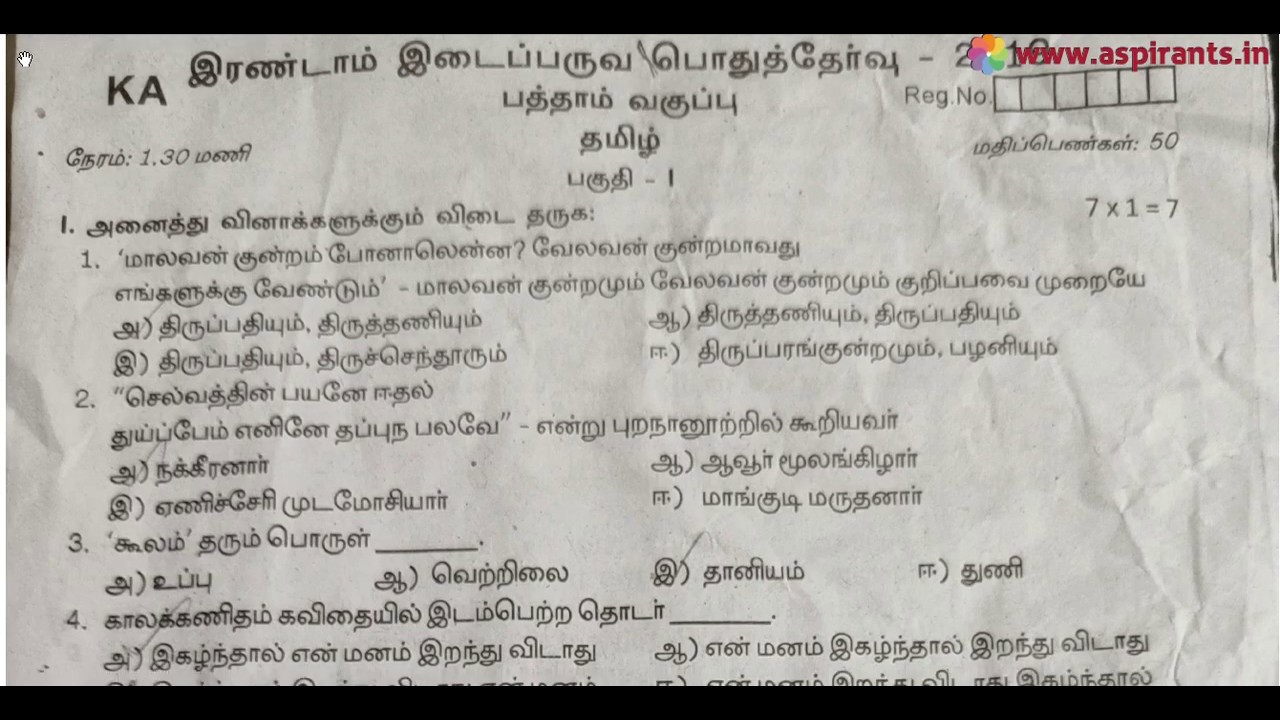 www.aspirants.in
இரண்டாம் இடைப்பருவ பொதுத்தேர்வு -
KA
பத்தாம் வகுப்பு
Reg.No.
தமிழ்
நேரம்: 1.30 மணி
மதிப்பெண்கள்: 50
பகுதி - I
I. அனைத்து வினாக்களுக்கும் விடை தருக:
7 x 1 = 7
1. ‘மாலவன் குன்றம் போனாலென்ன? வேலவன் குன்றமாவது
எங்களுக்கு வேண்டும்’ - மாலவன் குன்றமும் வேலவன் குன்றமும் குறிப்பவை முறையே
அ) திருப்பதியும், திருத்தணியும் ஆ) திருத்தணியும், திருப்பதியும்
இ) திருப்பதியும், திருச்செந்தூரும் ஈ) திருப்பரங்குன்றமும், பழனியும்
2. “செல்வத்தின் பயனே ஈதல்
துய்ப்பேம் எனினே தப்புந பலவே” - என்று புறநானூற்றில் கூறியவர்
அ) நக்கீரனார் ஆ) ஆவூர் மூலங்கிழார்
இ) ஏணிச்சேரி முடமோசியார் ஈ) மாங்குடி மருதனார்
3. ‘கூலம்’ தரும் பொருள் ________.
அ) உப்பு ஆ) வெற்றிலை இ) தானியம் ஈ) துணி
4. காலக்கணிதம் கவிதையில் இடம்பெற்ற தொடர் ________.
அ) இகழ்ந்தால் என் மனம் இறந்து விடாது ஆ) என் மனம் இகழ்ந்தால் இறந்து விடாது
ஈ) என் மனம் இறந்து விடாது இகழ்ந்தால்